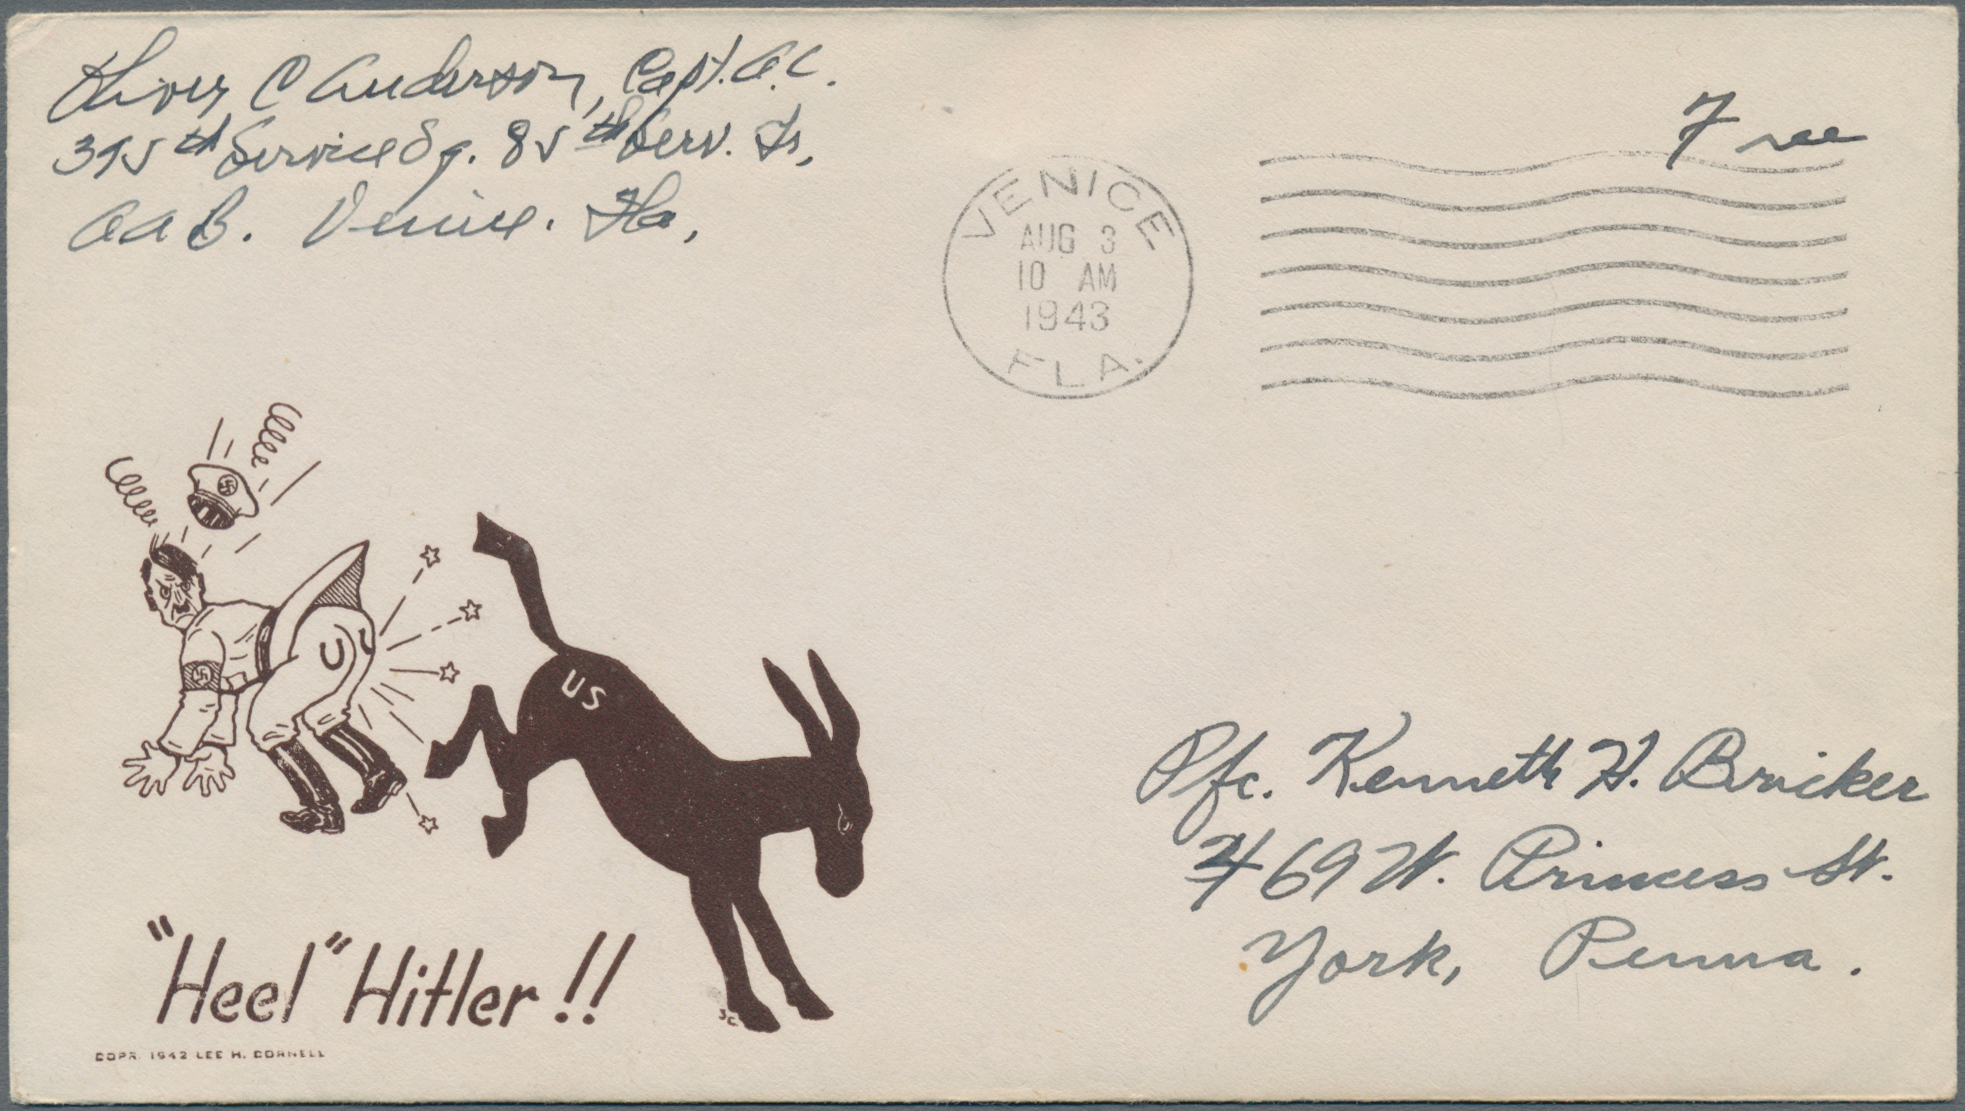 C Anderson, Capt. A.C.
395th Service Sq. 85th Serv. Gr.
AAB. Venice. Fla,
Free
VENICE
AUG 3
10 AM
1943
FLA.
US
Pfc. Kenneth H. Bricker
469 W. Princess St.
York, Penna.
"Heel" Hitler!!
JC
COPR. 1942 LEE H. CORNELL